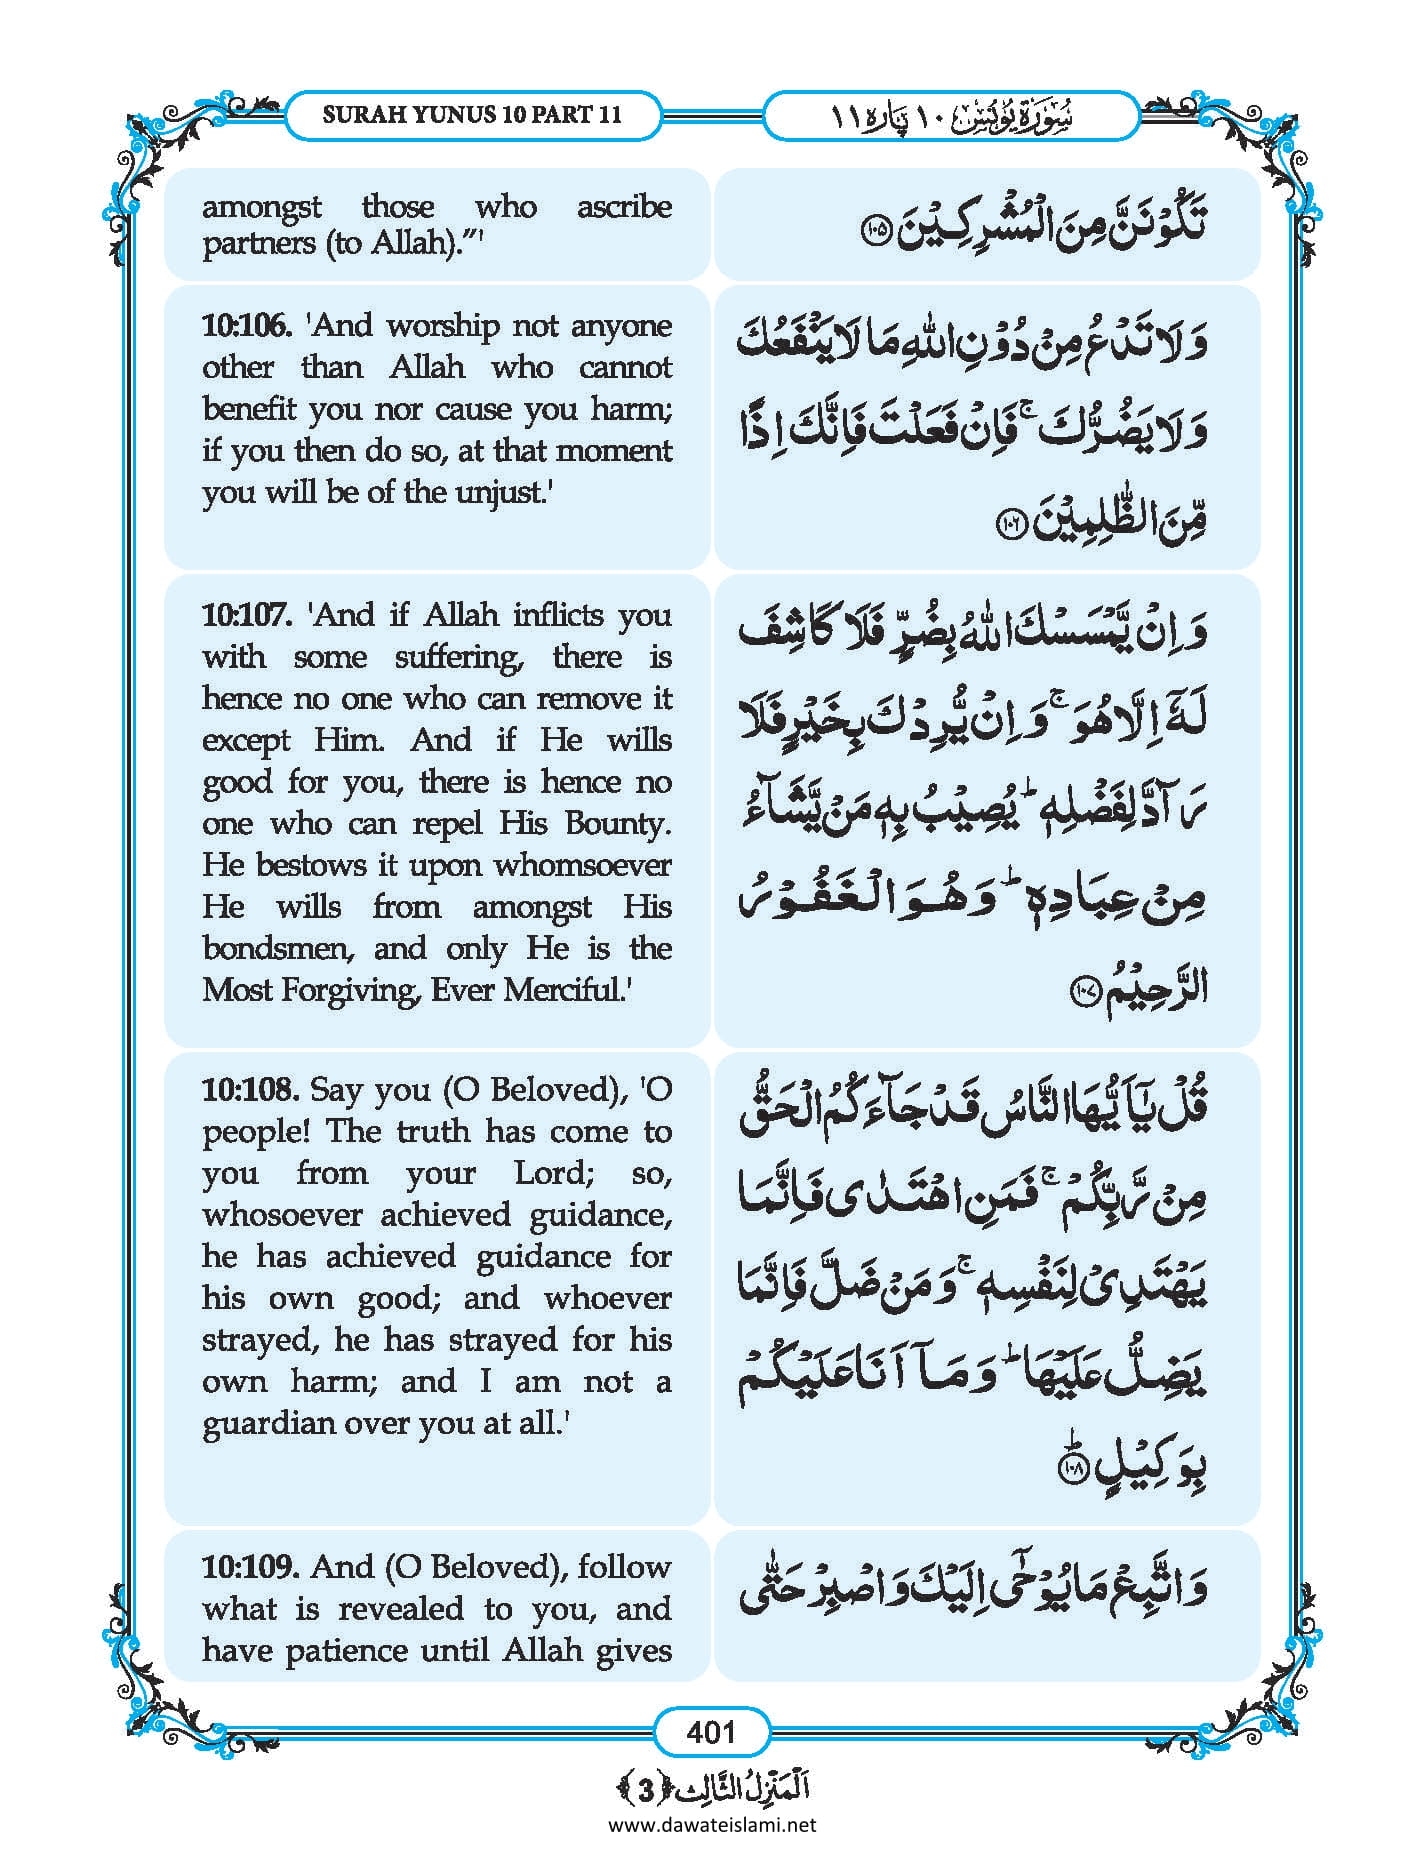 SURAH YUNUS 10 PART 11
سُوْرَةُ يُوْنُس ١٠ پَارَه ١١
amongst those who ascribe
partners (to Allah).”'
تَكُوْنَنَّ مِنَ الْمُشْرِكِيْنَ ﴿۱۰۵﴾
10:106. 'And worship not anyone
other than Allah who cannot
benefit you nor cause you harm;
if you then do so, at that moment
you will be of the unjust.'
وَلَا تَدْعُ مِنْ دُوْنِ اللّٰهِ مَا لَا يَنْفَعُكَ
وَلَا يَضُرُّكَ ۚ فَاِنْ فَعَلْتَ فَاِنَّكَ اِذًا
مِّنَ الظّٰلِمِيْنَ ﴿۱۰۶﴾
10:107. 'And if Allah inflicts you
with some suffering, there is
hence no one who can remove it
except Him. And if He wills
good for you, there is hence no
one who can repel His Bounty.
He bestows it upon whomsoever
He wills from amongst His
bondsmen, and only He is the
Most Forgiving, Ever Merciful.'
وَ اِنْ يَّمْسَسْكَ اللّٰهُ بِضُرٍّ فَلَا كَاشِفَ
لَهٗۤ اِلَّا هُوَ ۚ وَ اِنْ يُّرِدْكَ بِخَيْرٍ فَلَا
رَآدَّ لِفَضْلِهٖ ؕ يُصِيْبُ بِهٖ مَنْ يَّشَآءُ
مِنْ عِبَادِهٖ ؕ وَهُوَ الْغَفُوْرُ
الرَّحِيْمُ ﴿۱۰۷﴾
10:108. Say you (O Beloved), 'O
people! The truth has come to
you from your Lord; so,
whosoever achieved guidance,
he has achieved guidance for
his own good; and whoever
strayed, he has strayed for his
own harm; and I am not a
guardian over you at all.'
قُلْ يٰۤاَيُّهَا النَّاسُ قَدْ جَآءَكُمُ الْحَقُّ
مِنْ رَّبِّكُمْ ۚ فَمَنِ اهْتَدٰى فَاِنَّمَا
يَهْتَدِىْ لِنَفْسِهٖ ۚ وَمَنْ ضَلَّ فَاِنَّمَا
يَضِلُّ عَلَيْهَا ؕ وَمَاۤ اَنَا عَلَيْكُمْ
بِوَكِيْلٍ ﴿۱۰۸﴾ؕ
10:109. And (O Beloved), follow
what is revealed to you, and
have patience until Allah gives
وَ اتَّبِعْ مَا يُوْحٰۤى اِلَيْكَ وَ اصْبِرْ حَتّٰى
401
اَلْمَنْزِلُ الثَّالِث ﴿3﴾
www.dawateislami.net